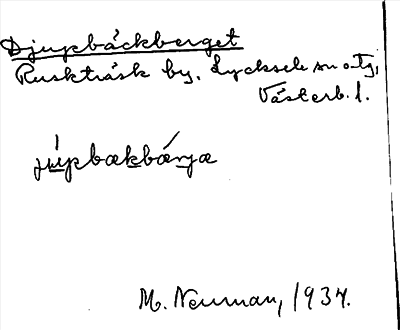 Djupbäckberget
Ruskträsk by, Lycksele sn o. tg,
Västerb. l.
M. Neuman, 1934.